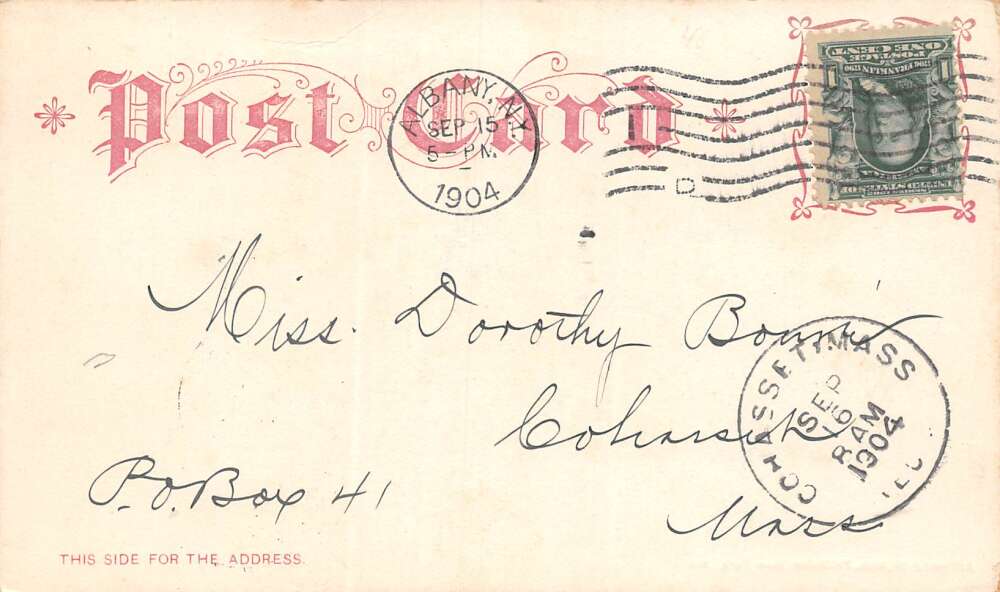 Post Card
ALBANY, N.Y.
SEP 15
5 - PM
1904
D
ONE CENT
POSTAGE
1706 FRANKLIN 1790
1 1
Miss. Dorothy
COHASSET, MASS
SEP
16
8 AM
1904
REC'D
P.O. Box 41
Mass
THIS SIDE FOR THE ADDRESS.